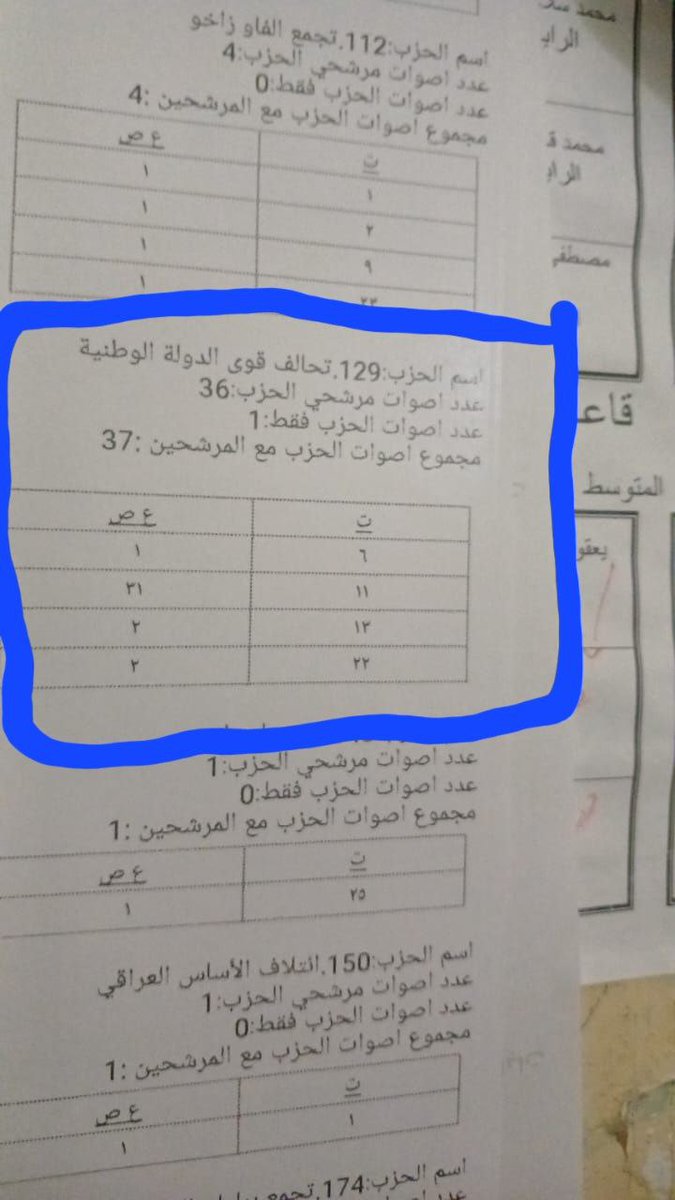 محمد
الراب
محمد ق
الراب
مصطفى
قاعـ
المتوسط
يعقو
اسم الحزب:112.تجمع الفاو زاخو
عدد اصوات مرشحي الحزب:4
عدد اصوات الحزب فقط:0
مجموع اصوات الحزب مع المرشحين :4
ت ع ص
١ ١
٢ ١
٩ ١
٢٢ ١
اسم الحزب:129.تحالف قوى الدولة الوطنية
عدد اصوات مرشحي الحزب:36
عدد اصوات الحزب فقط:1
مجموع اصوات الحزب مع المرشحين :37
ت ع ص
٦ ١
١١ ٣١
١٣ ٢
٢٢ ٢
عدد اصوات مرشحي الحزب:1
عدد اصوات الحزب فقط:0
مجموع اصوات الحزب مع المرشحين :1
ت ع ص
٢٥ ١
اسم الحزب:150.ائتلاف الأساس العراقي
عدد اصوات مرشحي الحزب:1
عدد اصوات الحزب فقط:0
مجموع اصوات الحزب مع المرشحين :1
ت ع ص
١ ١
اسم الحزب:174.تجمع